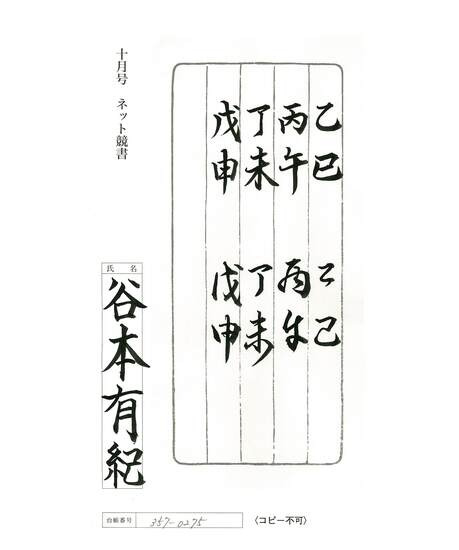 乙巳 乙巳
丙午 丙午
丁未 丁未
戊申 戊申
十月号 ネット競書
氏名
谷本有紀
台帳番号 357-0275
〈コピー不可〉